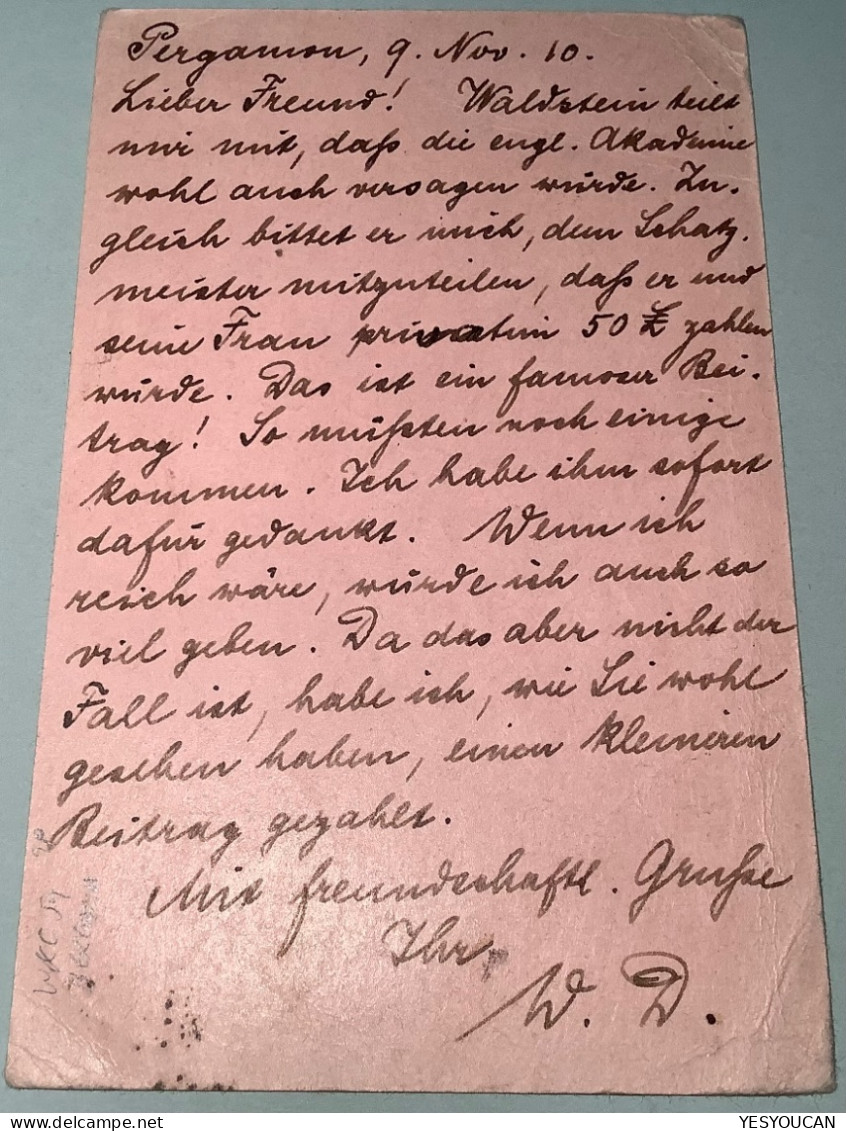 Pergamon, 9. Nov. 10.
Lieber Freund! Waldstein teilt
mir mit, daß die engl. Akademie
wohl auch versagen würde. Zu-
gleich bittet er mich, dem Schatz-
meister mitzuteilen, daß er und
seine Frau privatim 50 £ zahlen
würde. Das ist ein famoser Bei-
trag! So müßten noch einige
kommen. Ich habe ihm sofort
dafür gedankt. Wenn ich
reich wäre, würde ich auch so
viel geben. Da das aber nicht der
Fall ist, habe ich, wie Sie wohl
gesehen haben, einen kleineren
Beitrag gezahlt.
Mit freundschaftl. Gruße
Ihr
W. D.
YESYOUCAN